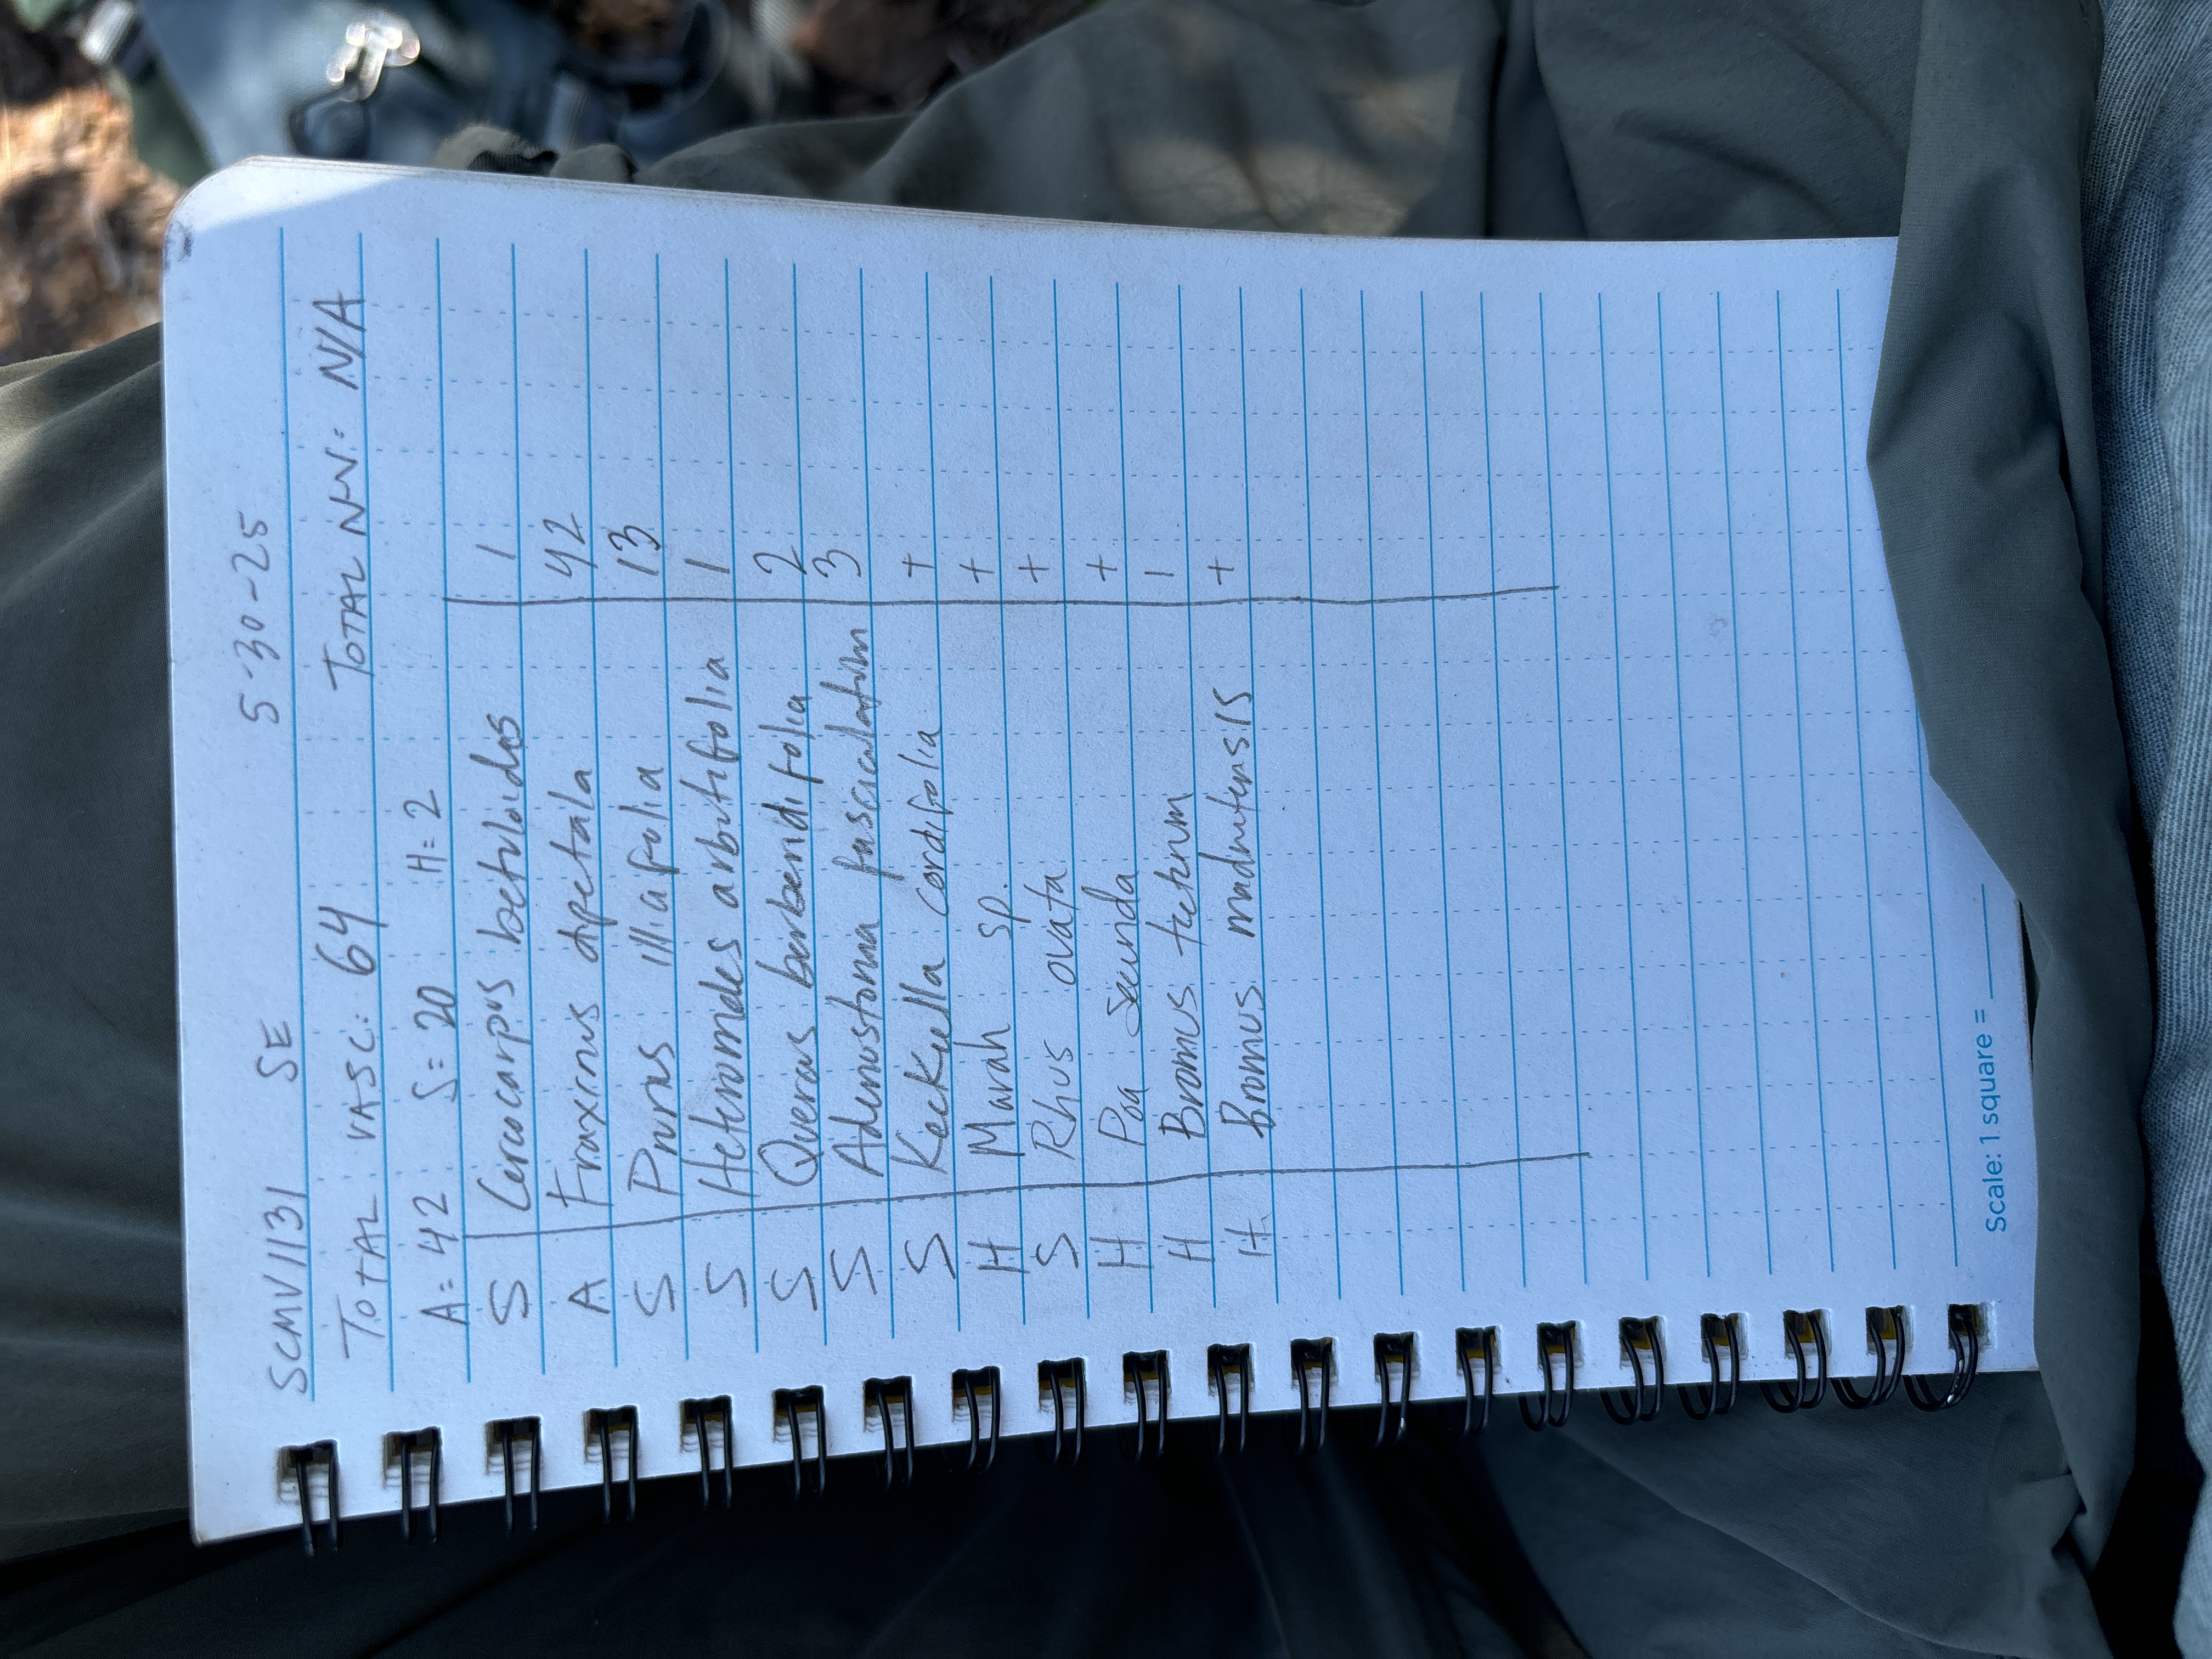 SCMV1131 SE 5-30-25
TOTAL VASC: 64 TOTAL N-N: N/A
A=42 S=20 H=2
S Cercocarpus betuloides 1
A Fraxinus dipetala 42
S Prnus illiafolia 13
S Heteromeles arbutifolia 1
S Quercus berberidifolia 2
S Adenostoma fasciculatum 3
S Keckiella cordifolia +
H Marah sp. +
S Rhus ovata +
H Poa secunda +
H Bromus tectorum 1
H Bromus madritensis +
Scale: 1 square = ____